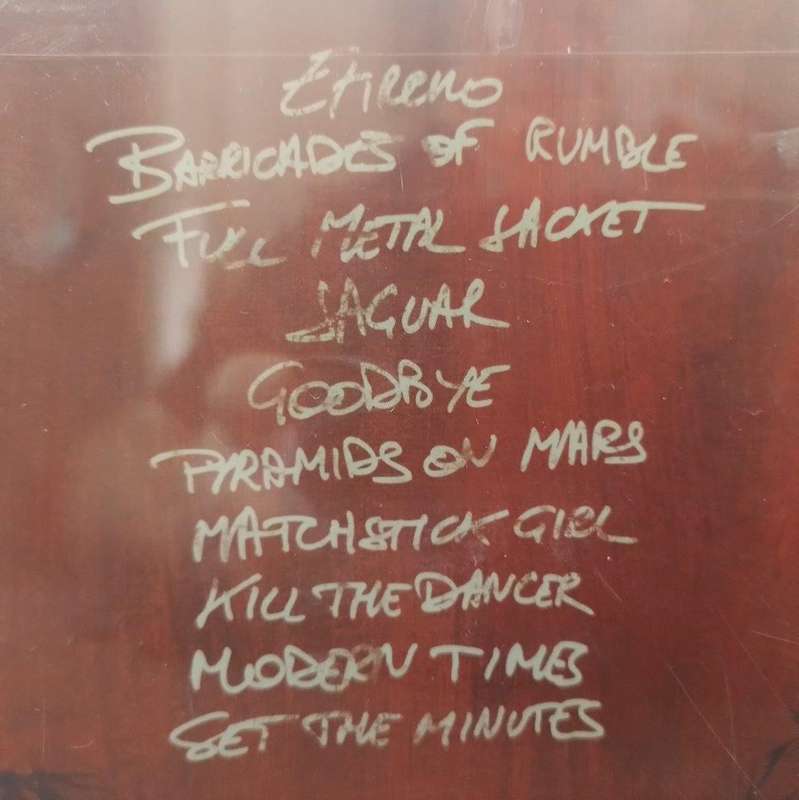 BARRICADES OF RUMBLE
FULL METAL JACKET
JAGUAR
GOODBYE
PYRAMIDS ON MARS
MATCHSTICK GIRL
KILL THE DANCER
MODERN TIMES
SET THE MINUTES